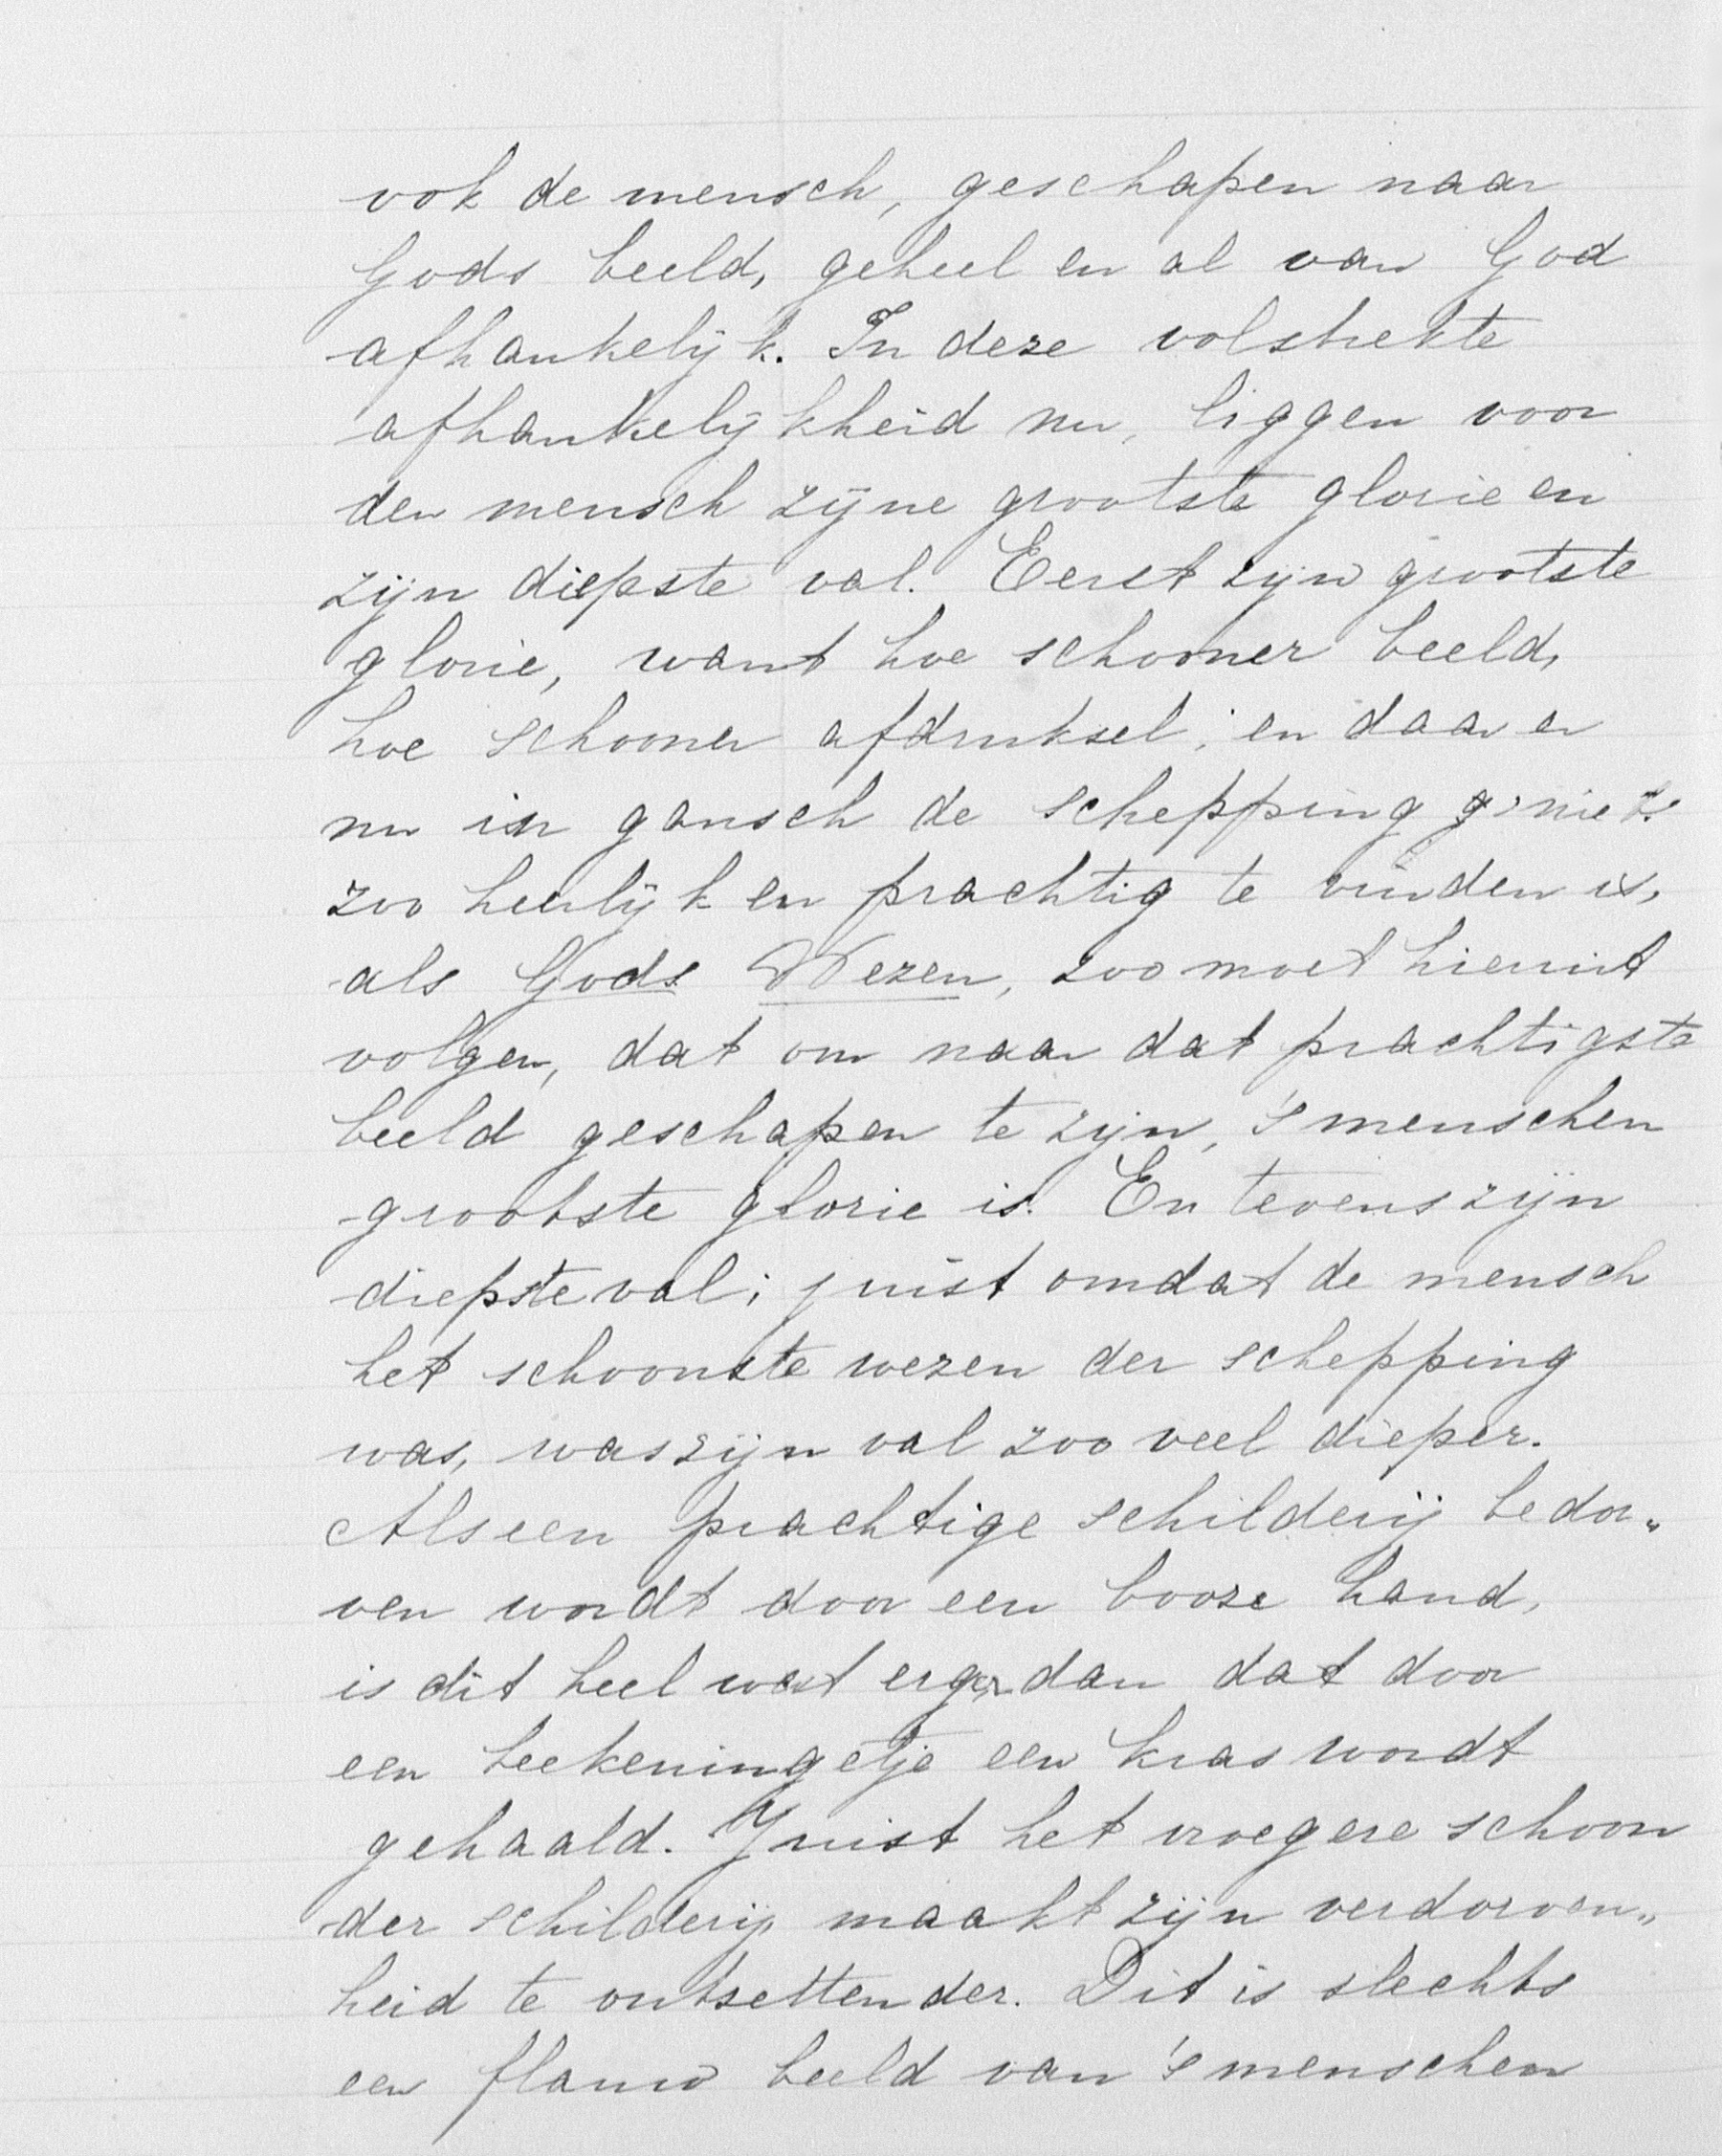 ook de mensch, geschapen naar
Gods beeld, geheel en al van God
afhankelijk. In deze volstrekte
afhankelijkheid nu, liggen voor
den mensch zijne grootste glorie en
zijn diepste val. Eerst zijn grootste
glorie, want hoe schooner beeld,
hoe schooner afdruksel; en daar er
nu in gansch de schepping niets
zoo heerlijk en prachtig te vinden is,
als Gods Wezen, zoo moet hieruit
volgen, dat om naar dat prachtigste
beeld geschapen te zijn, 's menschen
grootste glorie is. En tevens zijn
diepste val; juist omdat de mensch
het schoonste wezen der schepping
was, was zijn val zoo veel dieper.
Als een prachtige schilderij bedor„
ven wordt door een booze hand,
is dit heel wat erger dan dat door
een teekeningetje een kras wordt
gehaald. Juist het vroegere schoon
der schilderij maakt zijn verdorven„
heid te ontsettender. Dit is slechts
een flauw beeld van 's menschen